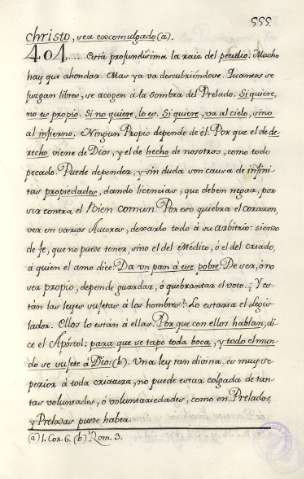 555
christo, sea excomulgado (a).
404.... Otra profundissima la raiz del peculio. Mucho
hay que ahondar. Mas ya va descubriéndose. Quienes se
juzgan libres, se acogen a la sombra del Prelado. Si quiere,
no es propio. Si no quiere, lo es. Si quiere, va al cielo, sino
al infierno. Ningun Propio depende de él. Por que el de de-
recho viene de Dios, y el de hecho de nosotros, como todo
pecado. Puede depender, y sin duda son causa de infini-
tas propiedades, dando licencias, que deben negar, por
ser contra el Bien comun. Por eso quiebra el corazon,
ver en varios Autores, dexarlo todo à su arbitrio: siendo
de fe, que no puede tener, sino el del Médico, ó el del criado,
à quien el amo dice: Da un pan à ese pobre. De ser, ò no
ser propio, depende guardar, ó quebrantar el voto. Y es-
tán las leyes sujetas á los hombres? Lo estaria el Legis-
lador. Ellos lo están á ellas. Por que con ellos hablan, di-
ce el Apóstol: para que se tape toda boca, y todo el mun-
do se sujete à Dios (b). Una ley tan divina, es muy su-
perior à toda criatura, no puede estar colgada de tan-
tas voluntades, ó voluntariedades, como en Prelados,
y Preladas puede haber.
(a) 1. Cor. 6. (b) Rom. 3.